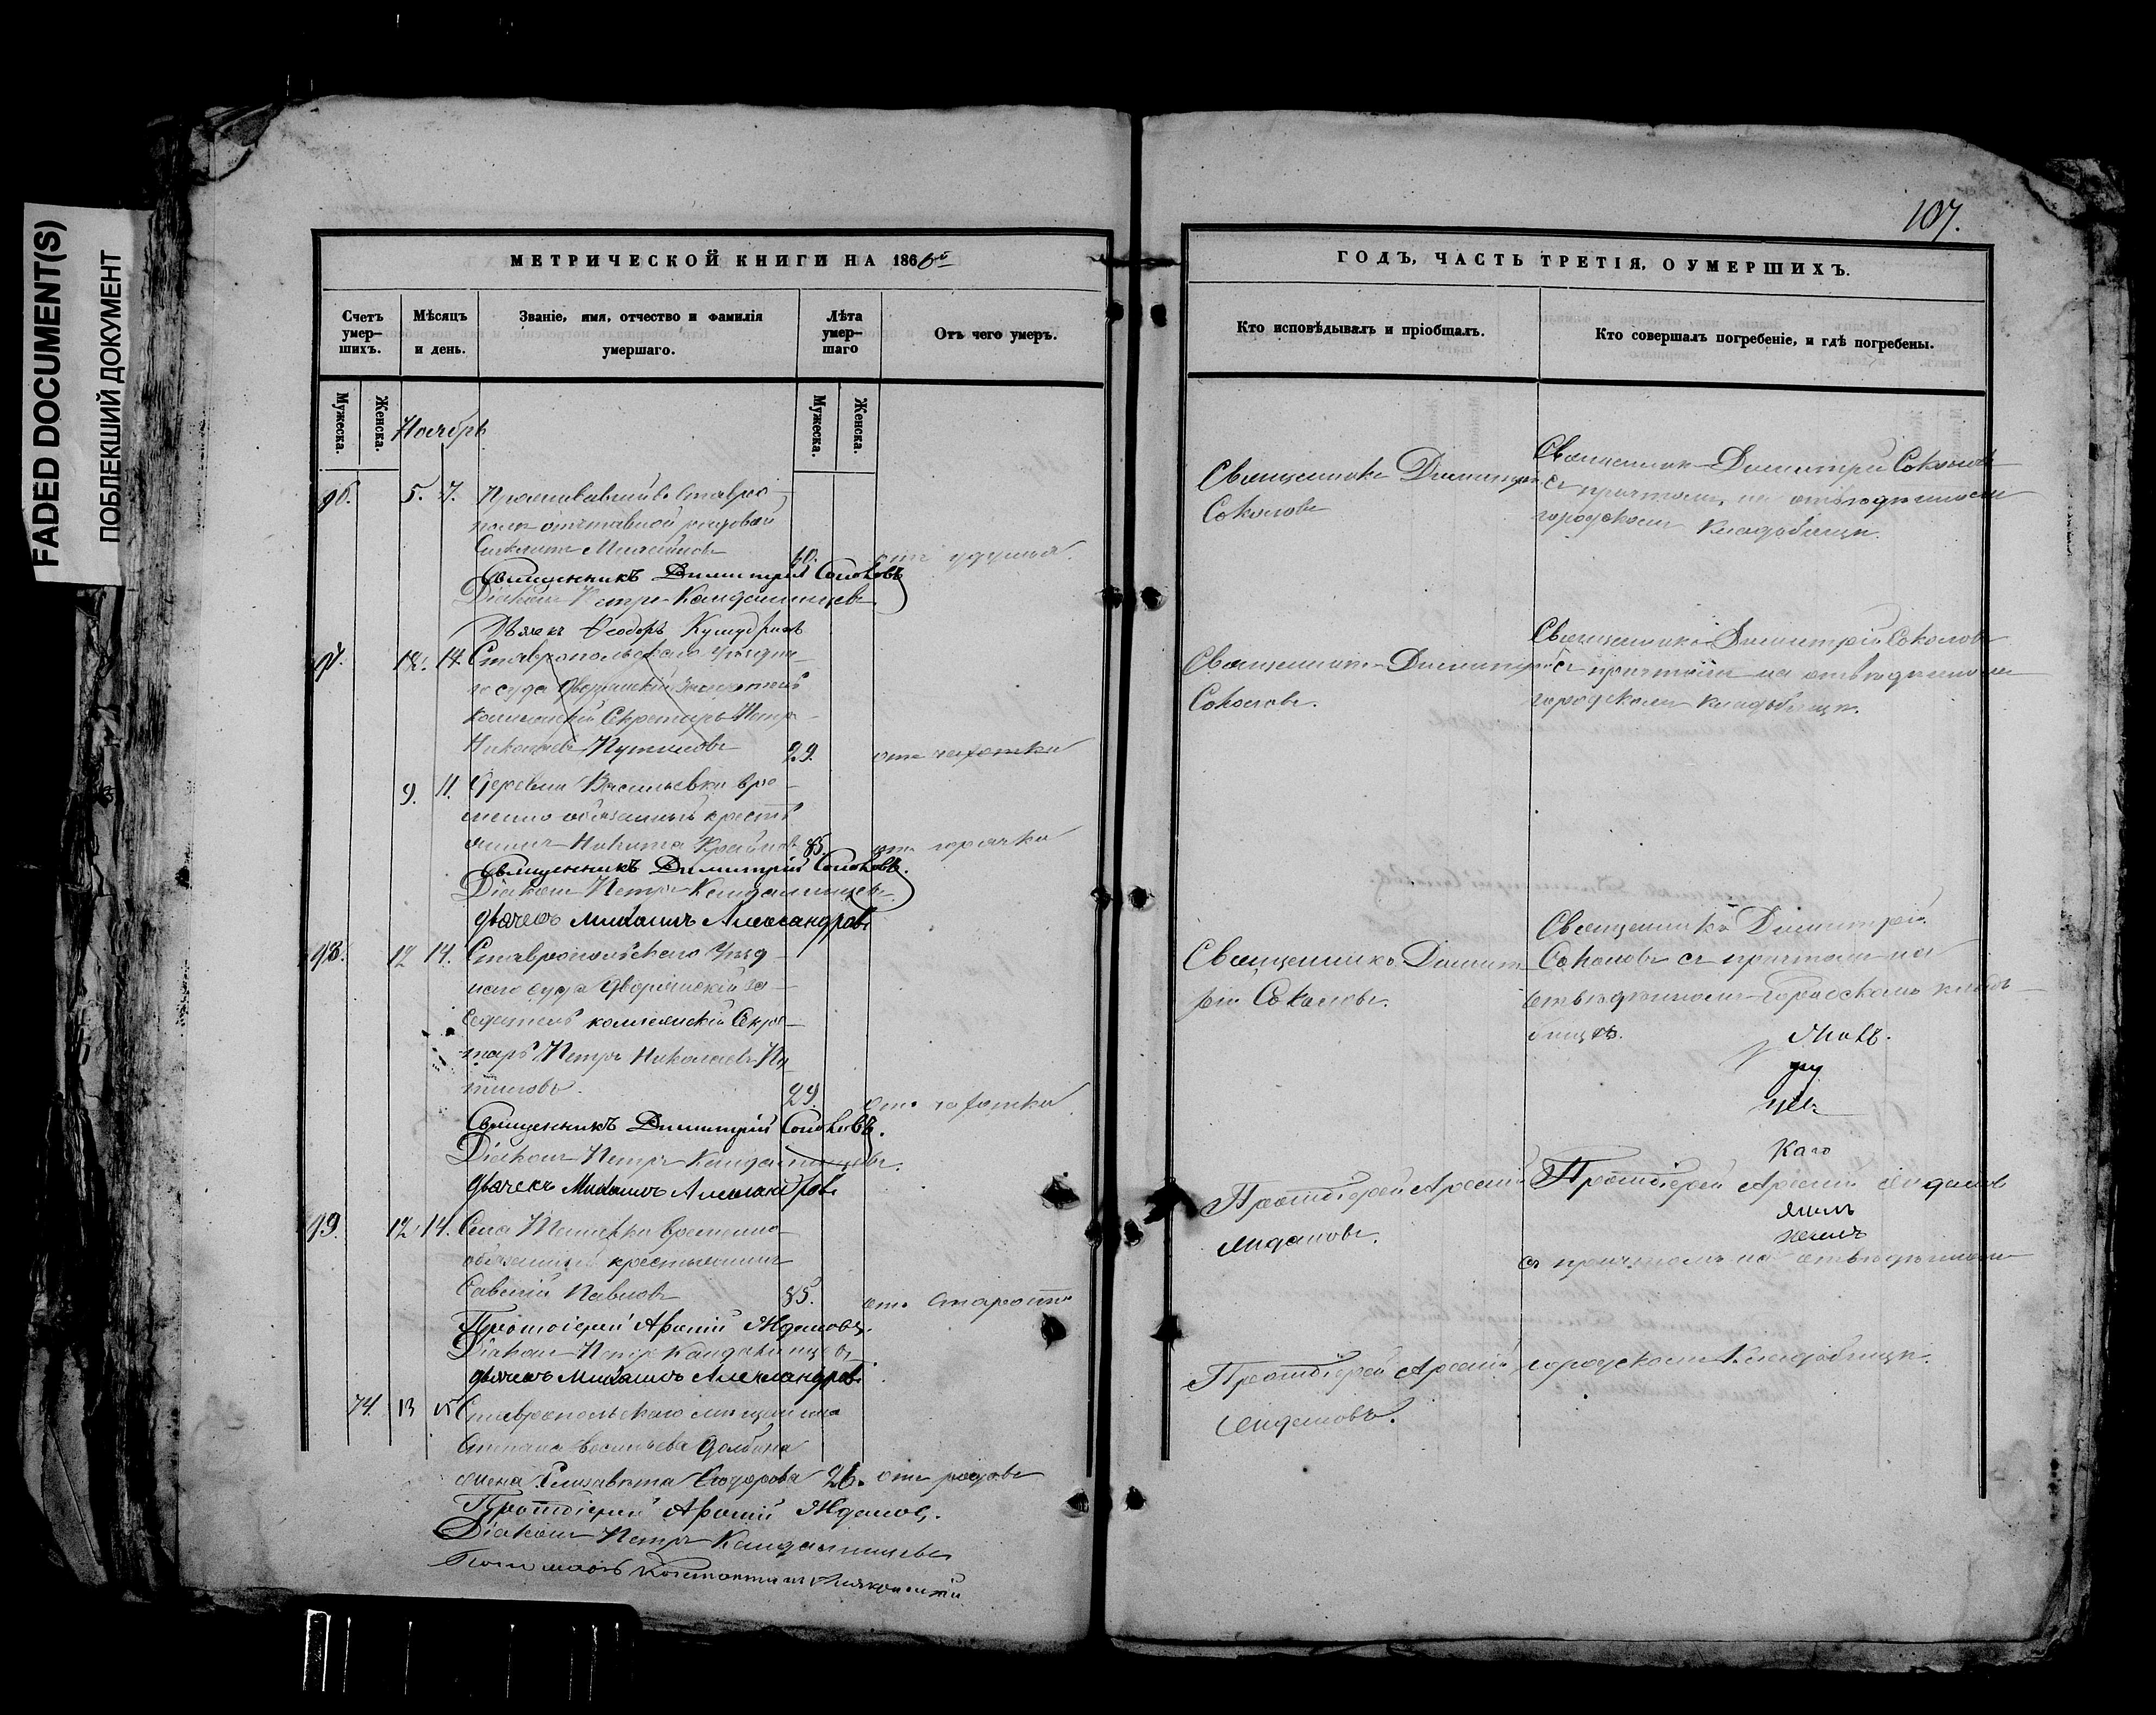 FADED DOCUMENT(S)
ПОБЛЕКШИЙ ДОКУМЕНТ
МЕТРИЧЕСКОЙ КНИГИ НА 1866й
Счетъ умер-шихъ.
Мѣсяцъ и день.
Званіе, имя, отчество и фамилія умершаго.
Лѣта умер-шаго
Отъ чего умеръ.
Мужеска.
Женска.
Ноябрь
Мужеска.
Женска.
96. 5. 7. Проживавшій въ Ставро-
полѣ отставной рядовой
40. отъ удушья
Священникъ Димитрій Соколовъ
Діаконъ Петръ Кандалинцевъ
Дьячекъ Ѳеодоръ
97. 12. 14. Ставропольскаго Уѣздна-
го суда Дворянскій Засѣдатель
коллежскій Секретарь Петръ
Николаевъ Путиловъ 29. отъ чахотки
9. 11. Деревни Васильевки вре-
менно обязанный кресть-
янинъ Никита 85. отъ горячки
Священникъ Димитрій Соколовъ.
Діаконъ Петръ Кандалинцевъ
Дьячекъ Михаилъ Александровъ
98. 12 14. Ставропольскаго Уѣзд-
наго суда Дворянскій За-
сѣдатель коллежскій Секре-
тарь Петръ Николаевъ Пу-
тиловъ. 29. отъ чахотки
Священникъ Димитрій Соколовъ.
Діаконъ Петръ Кандалинцевъ.
Дьячекъ Михаилъ Александровъ
99. 12 14. Села временно-
обязанный крестьянинъ
Савелій Павловъ 85. отъ старости
Протоіерей Арсеній Ждановъ.
Діаконъ Петръ Кандалинцевъ
Дьячекъ Михаилъ Александровъ
74. 13 15 Ставропольскаго мѣщанина
Степана Васильева
жена Елизавета Ѳедорова 26. отъ родовъ
Протоіерей Арсеній Ждановъ.
Діаконъ Петръ Кандалинцевъ
Пономарь Константинъ
107.
ГОДЪ, ЧАСТЬ ТРЕТІЯ, О УМЕРШИХЪ.
Кто исповѣдывалъ и пріобщалъ.
Кто совершалъ погребеніе, и гдѣ погребены.
Священникъ Димитрій
Соколовъ
Священник Димитрій Соколовъ
съ причтомъ, на отведенномъ
городскомъ кладбищѣ.
Священникъ Димитрій
Соколовъ.
Священникъ Димитрій Соколовъ
съ причтомъ на отведенномъ
городскомъ кладбищѣ.
Священникъ Димит-
рій Соколовъ.
Священникъ Димитрій
Соколовъ съ причтомъ на
отведенномъ городскомъ кладб-
ищѣ.
Протоіерей Арсеній
Ждановъ.
Протоіерей Арсеній Ждановъ
съ причтомъ на отведенномъ
городскомъ кладбищѣ.
Протоіерей Арсеній
Ждановъ.